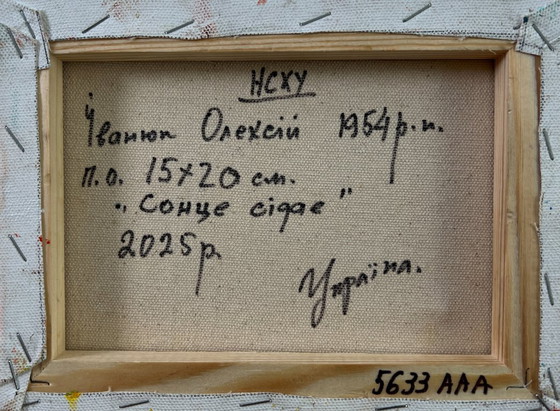 НСХУ
Іванюк Олексій 1954р.н.
п.о. 15х20 см.
„Сонце сідає"
2025р.
Україна.
5633 ААА